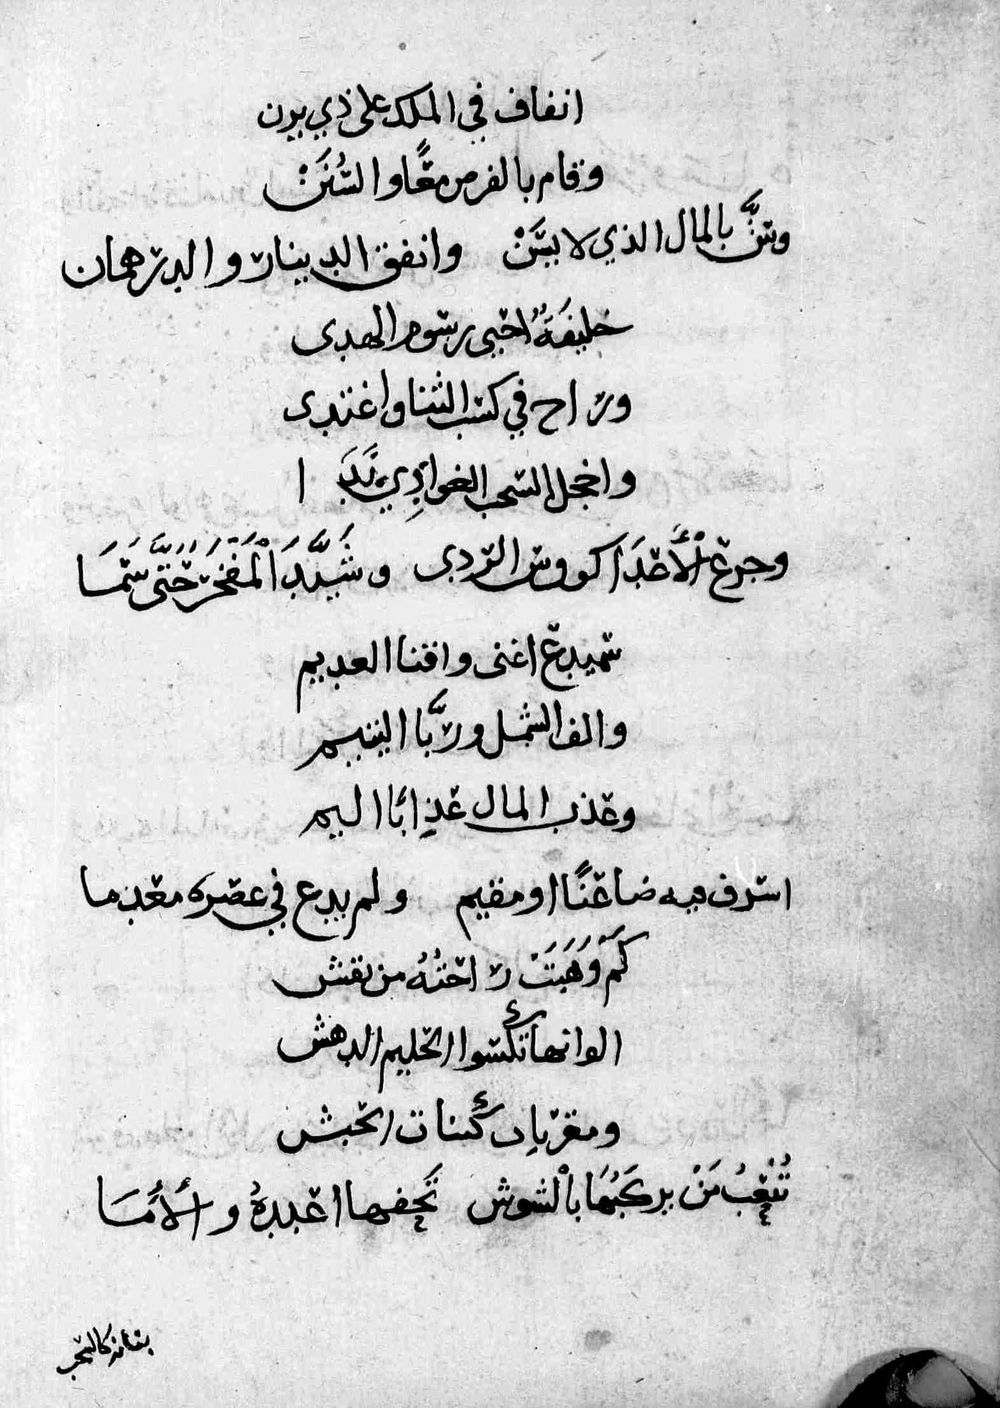 اناف في الملك على ذي يزن
وقام بالفرض معًا والسُّنَنْ
وشنَّ بالمال الذي لا يشَنْ وانفق الدينار والدرهمان
خليفةٌ احيى رسوم الهدى
وراح في كسب الثنا واغتدى
واخجل السحب الغوادِي نَدَا
وجرع الأعدَا كووس الردى وشَيَّدَ المَفْخَرَ حَتَّى سَمَا
سميدع اغنى واقنا العديم
والف الشمل وربَّا اليتيم
وعذب المال عذابًا اليم
اسرف فيه ضاعنًا او مقيم ولم يدع في عصره معدما
كَمْ وَهَبَتْ راحتُهُ من نقش
الوانها تكسوا الحليم الدهش
ومقربات كبنات الحبش
تُتْعِبُ مَنْ يركبُهَا بالشوش تحفها اعبدهُ والأمَا
بنانه كالسحب